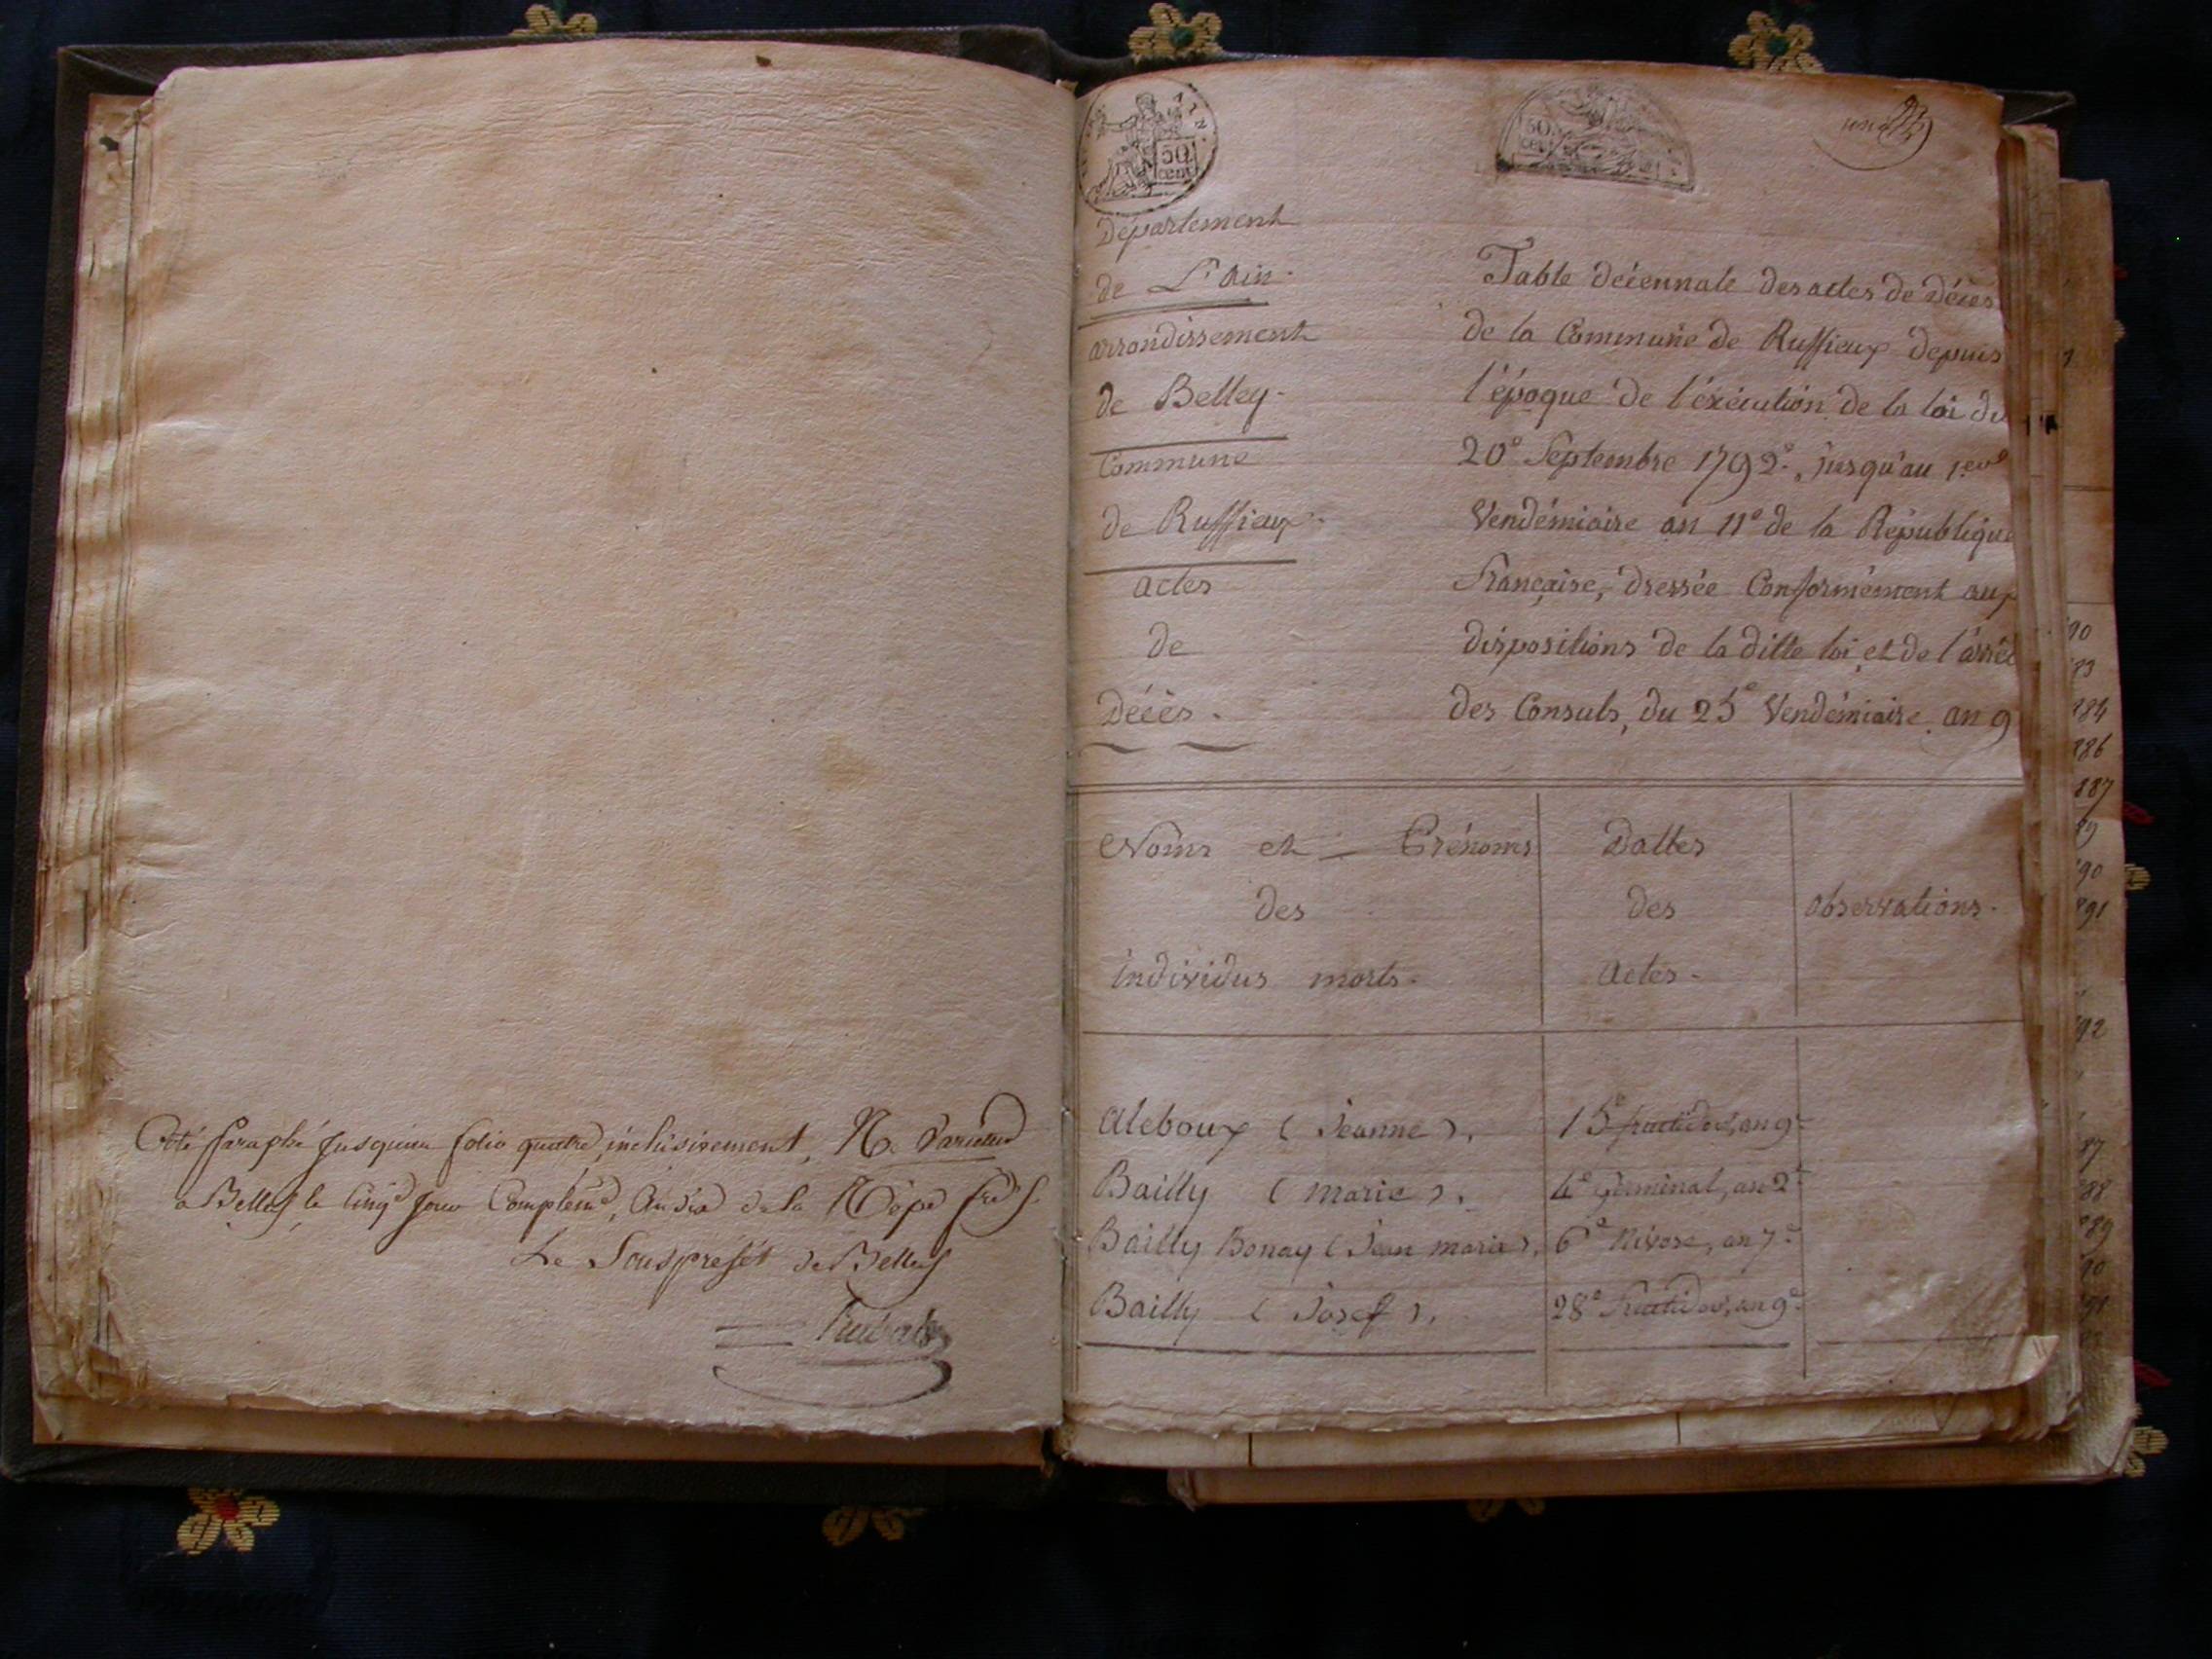 Coté paraphé jusquau folio quatre inclusivement,
a Belley le cinq jour Complem, an dix de la Rep
Le Souspréfét de Belley
50
cent
50
cent
une
Département
de L'Ain.
arrondissement
de Belley.
Commune
de Ruffieux.
actes
de
Décès.
Table décennale des actes de décès
de la Commune de Ruffieux depuis
l'époque de l'éxécution de la loi du
20e Septembre 1792e, jusqu'au 1er
Vendémiaire an 11e de la République
Française, dressée Conformément aux
dispositions de la ditte loi et de l'arrêt
des Consuls, du 25e Vendémiaire an 9
Noms et Prénoms
des
individus morts.
Dattes
des
actes.
observations.
Aleboux (Jeanne), 15e fructidor, an 9e
Bailly (marie), 4e Germinal, an 2e
Bailly Bonay (Jean marie), 6e Nivose, an 7e
Bailly (Josef), 28e Fructidor, an 9e
90
83
884
886
887
89
90
891
92
87
88
89
90
91